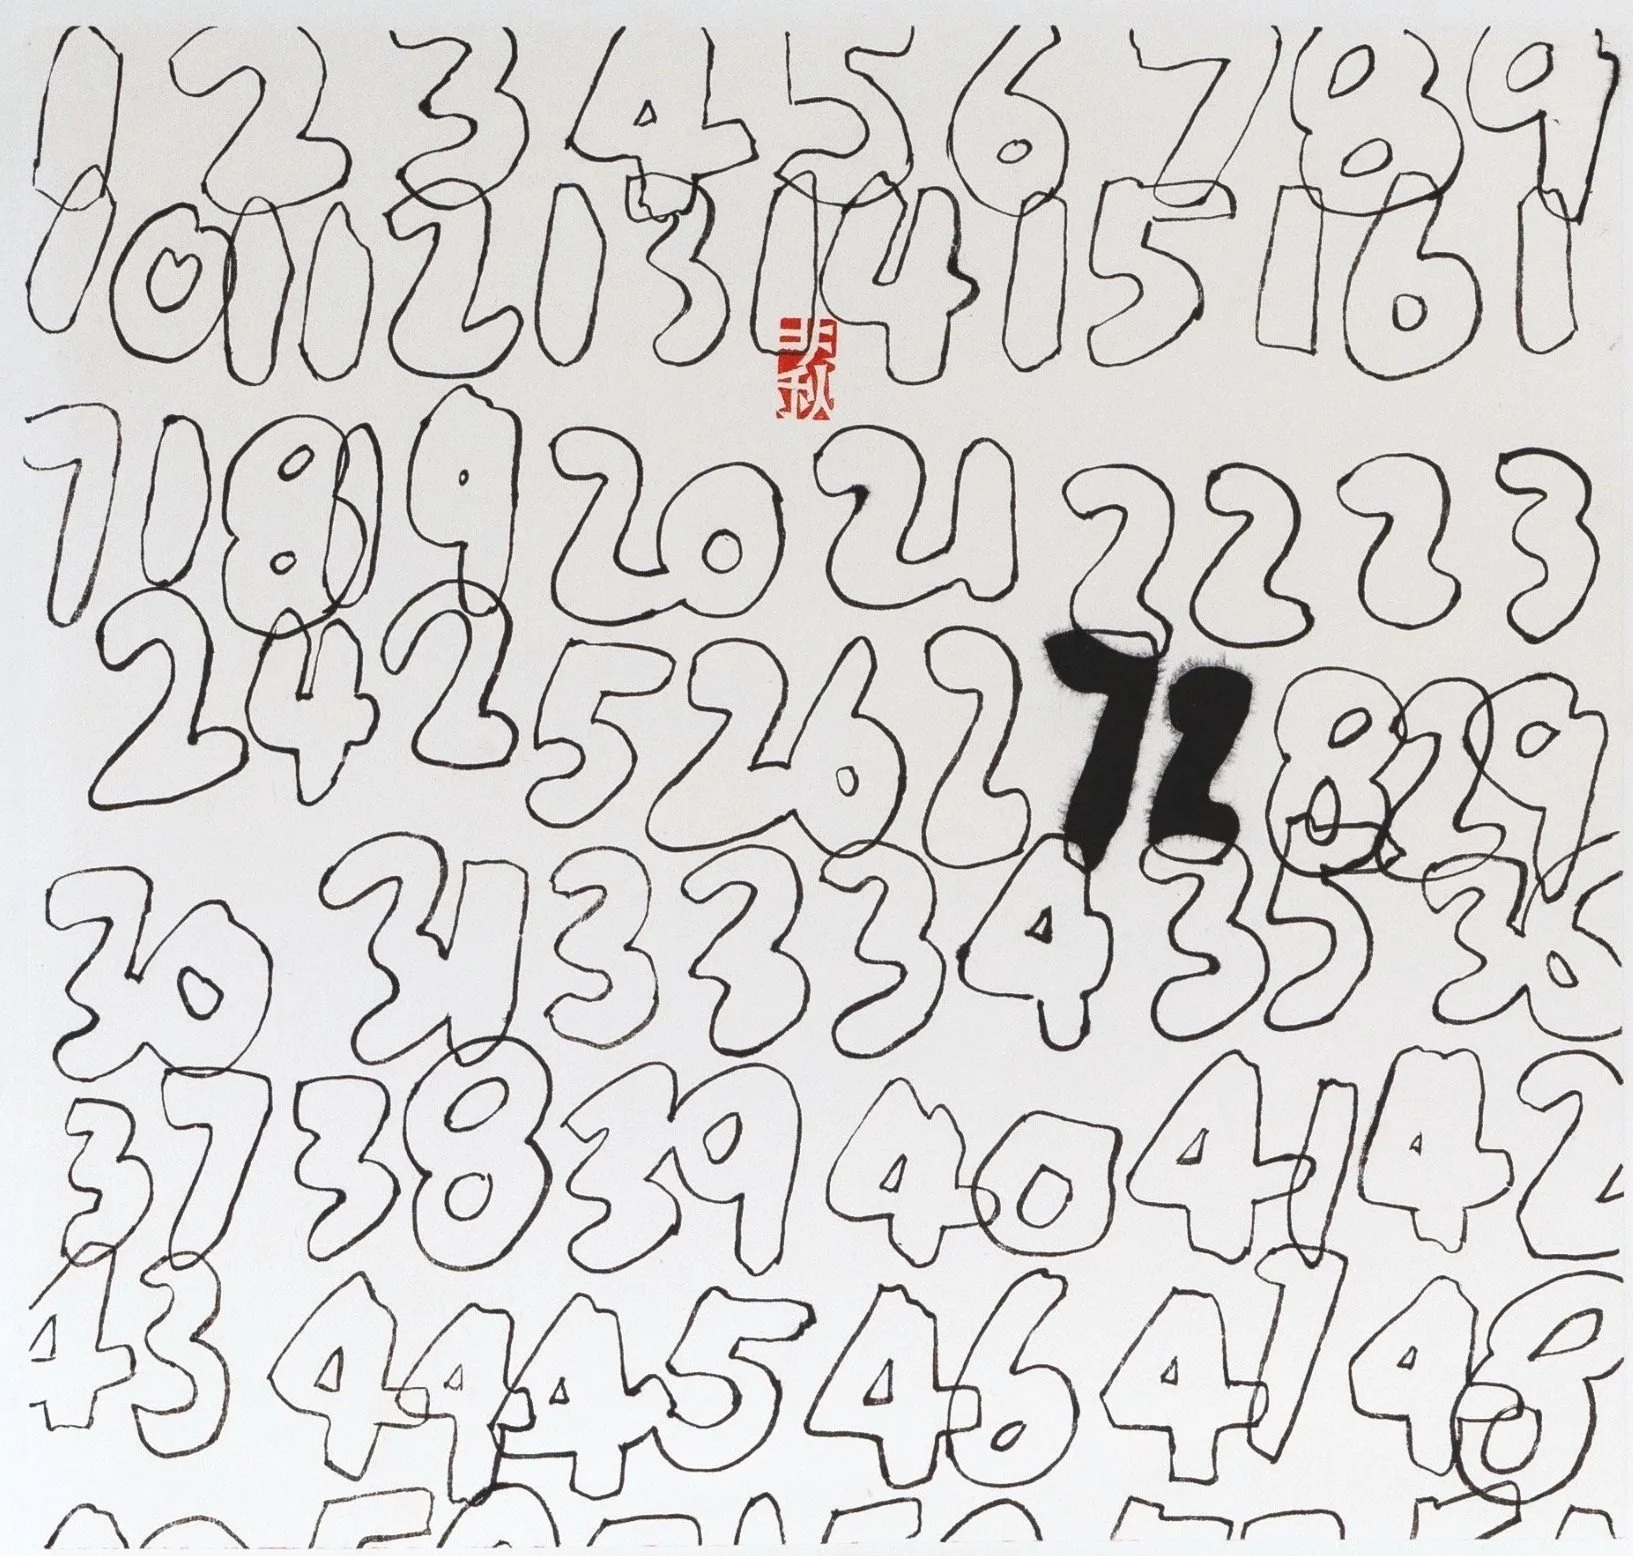 1 2 3 4 5 6 7 8 9
10 11 2 13 14 15 16 1
7 18 19 20 21 22 23
24 25 26 27 28 29
30 31 33 34 35 36
37 38 39 40 41 42
43 44 45 46 47 48